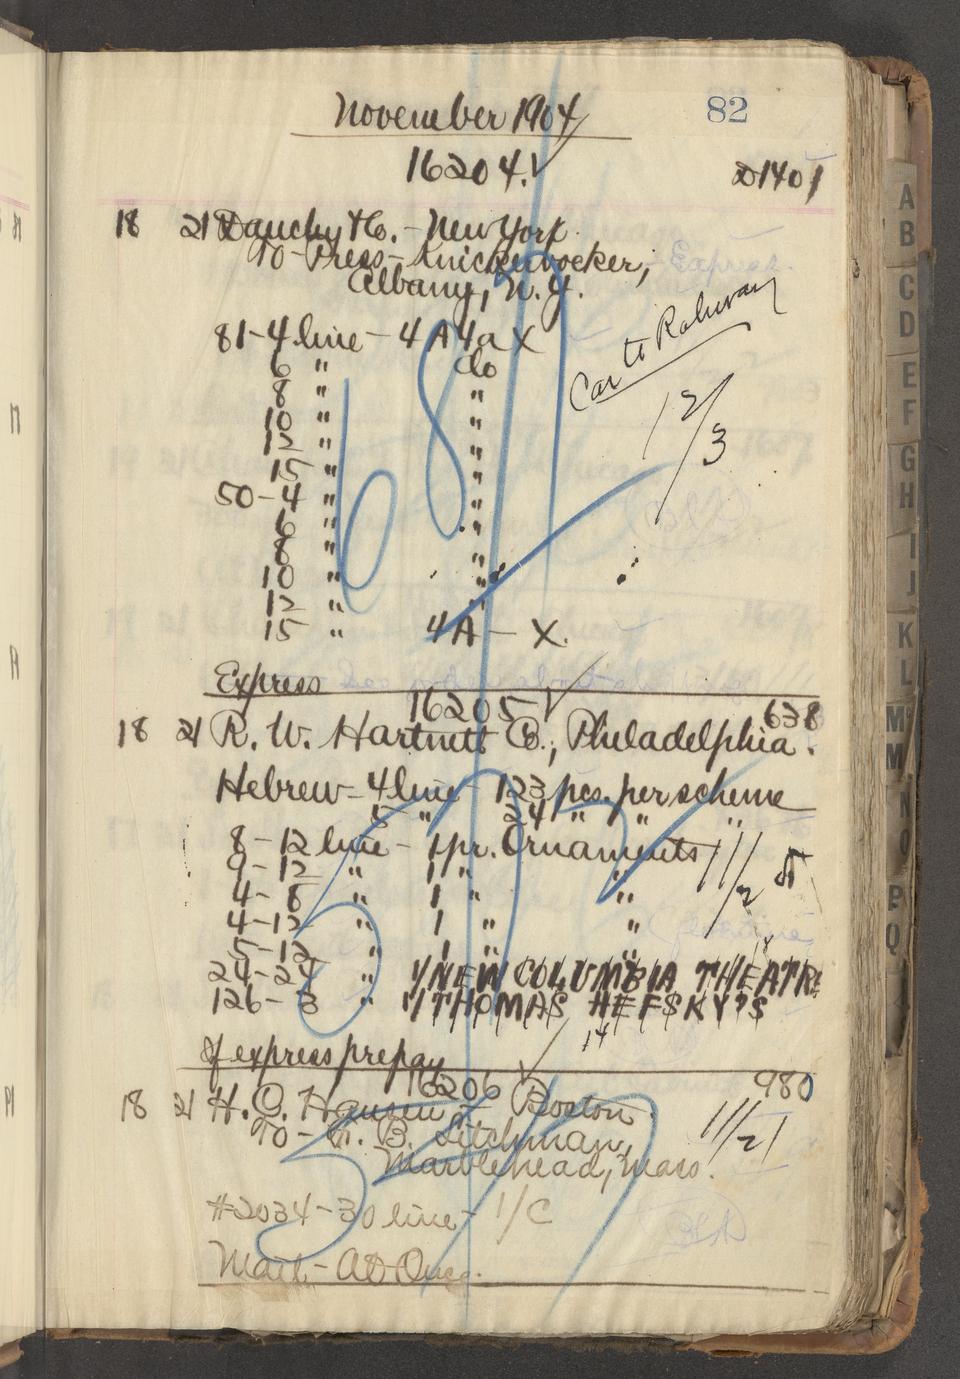 November 1904
82
16204.
D1401
18 21 Dauchy & Co. - New York
To - Press - Knickerbocker,
Albany, N.Y.
Car to Rahway
12/3
81 - 4 line - 4A 4a X
6 " do
8 " "
10 " "
12 " "
15 " "
50 - 4 " "
6 " "
8 " "
10 " "
12 " "
15 " 4A - X.
Express
16205
638
18 21 R. W. Hartnett Co., Philadelphia.
Hebrew - 4 line - 123 pcs. per scheme
5 " 24 " " "
8 - 12 line - 1 pr. Ornaments
11/25
9 - 12 " 1 " "
4 - 8 " 1 " "
4 - 12 " 1 " "
5 - 12 " 1 " "
24 - 24 " 1/NEW COLUMBIA THEATRE
18
126 - 8 " 1/THOMAS HEFSKY'S
14
If express prepay
16206
980
18 21 H. C. Hansen - Boston.
To - G. B. Litchman,
Marblehead, Mass.
11/21
#2034 - 30 line - 1/C
Mail - AD
A
B
C
D
E
F
G
H
I
J
K
L
M
M
N
O
P
Q